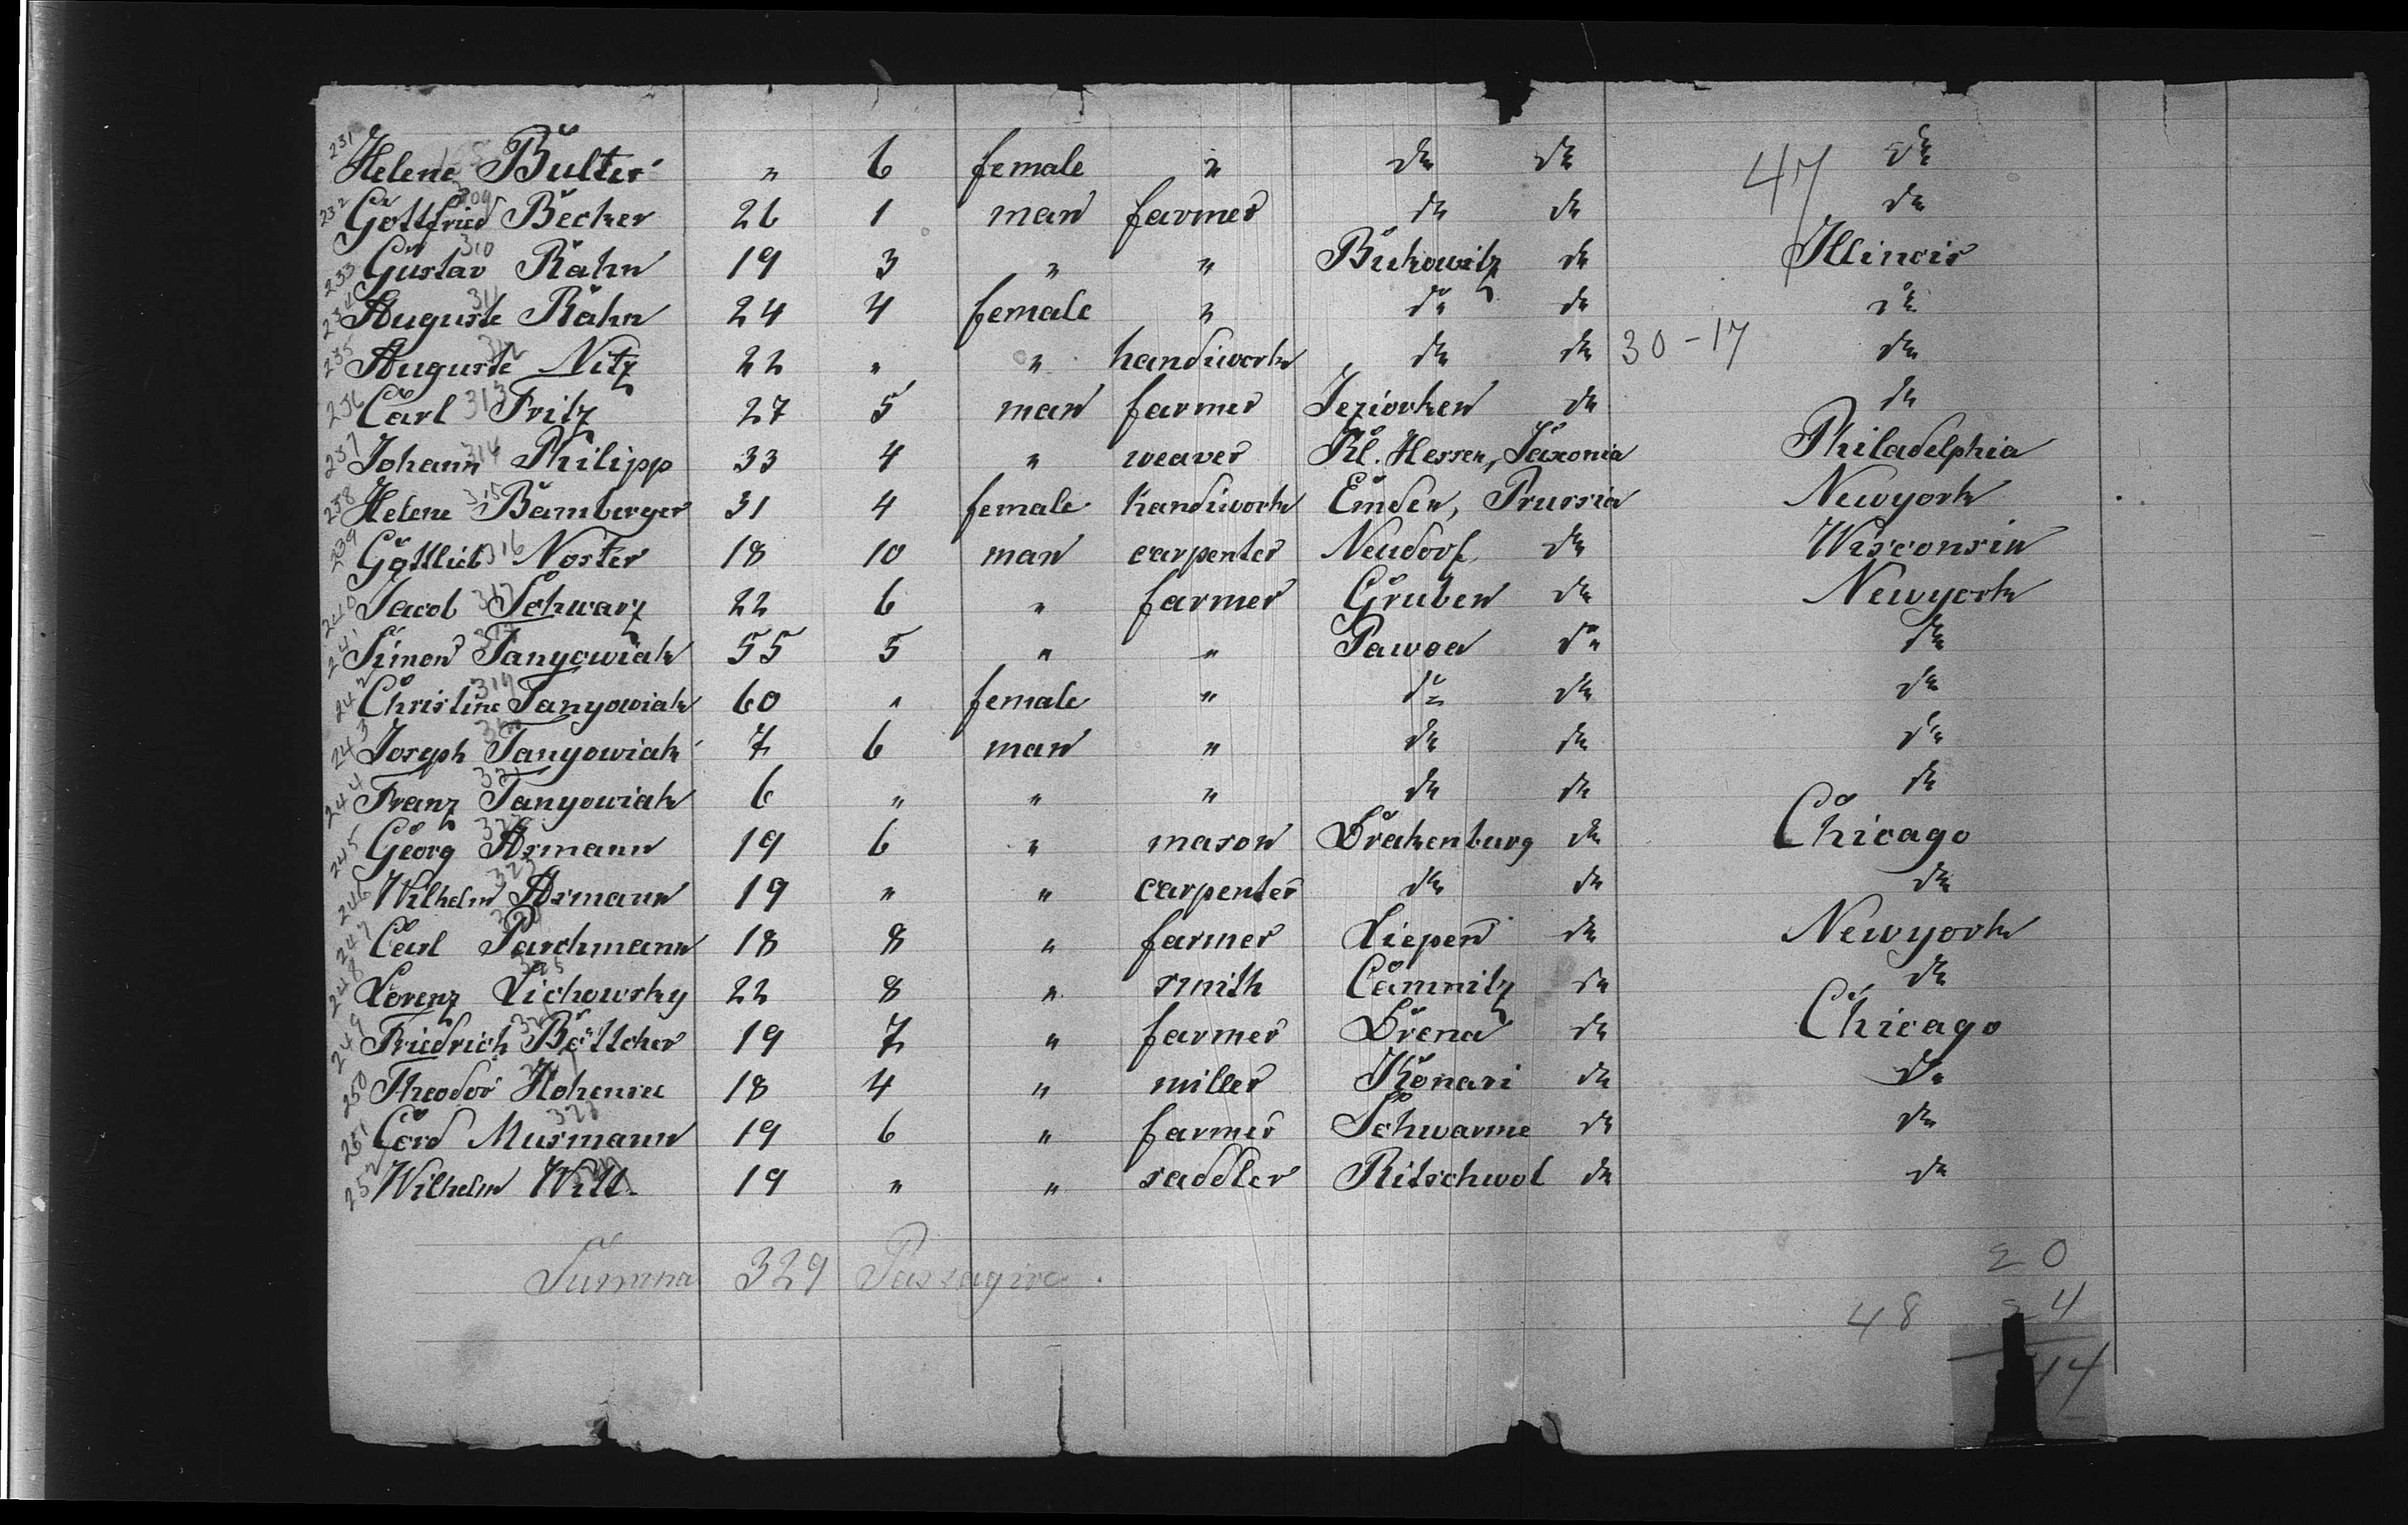 231 Helene Bulter " 6 female " do do do
47
232 Gottfried 309 Becker 26 1 man farmer do do do
233 Gustav 310 Rahn 19 3 " " Bukowitz do Illinois
234 Auguste 311 Rahn 24 4 female " do do do
235 Auguste 312 Nitz 22 " " handiwork do do 30-17 do
236 Carl 313 Fritz 27 5 man farmer Jeziorken do do
237 Johann 314 Philipp 33 4 " weaver Kl. Hessen, Saxonia Philadelphia
238 Helene 315 Bamberger 31 4 female handiwork Emden, Prussia Newyork
239 Gottlieb 316 Noster 18 10 man carpenter Neudorf do Wisconsin
240 Jacob 317 Schwarz 22 6 " farmer Gruben do Newyork
241 Simon 318 Tanyowiak 55 5 " " do do
242 Christine 319 Tanyowiak 60 " female " do do do
243 Joseph 320 Tanyowiak 7 6 man " do do do
244 Franz 321 Tanyowiak 6 " " " do do do
245 Georg 322 Asmann 19 6 " mason Drakenburg do Chicago
246 Wilhelm 323 Asmann 19 " " carpenter do do do
247 Carl Parchmann 18 8 " farmer Liepen do Newyork
248 Lorenz 325 Lichowsky 22 8 " smith Camnitz do do
249 Friedrich Böttcher 19 7 " farmer Drena do Chicago
250 Theodor Hohensee 18 4 " miller Konari do do
251 Cord 328 Musmann 19 6 " farmer Schwarme do do
252 Wilhelm Will 19 " " saddler Ritschwol do do
20
Summa 329 Passagire.
48 24
44